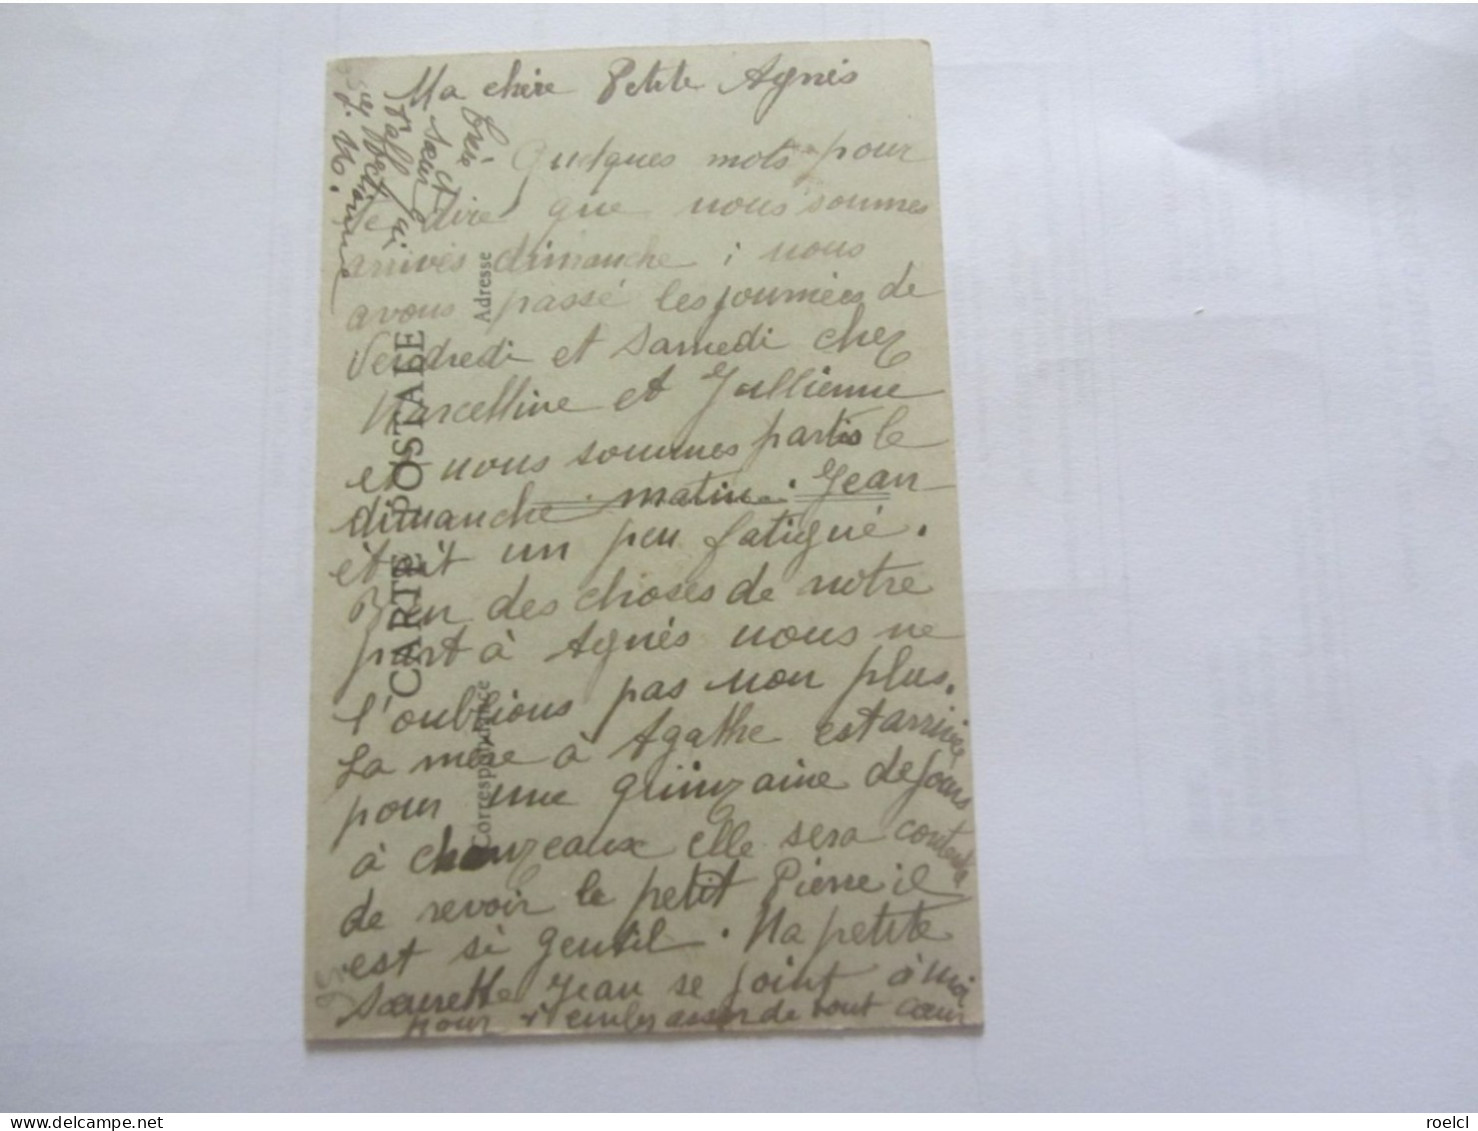 Ma chère Petite Agnès
Quelques mots pour
te dire que nous soumes
arrivés dimanche ; nous
avons passé les journées de
Vendredi et samedi chez
Marcelline et Jullienne
et nous sommes partis le
dimanche matin. Jean
était un peu fatigué.
Bien des choses de notre
part à Agnès nous ne
l'oublions pas non plus.
La mère à Agathe est arrivée
pour une quinzaine de jours
à chanzeaux elle sera contente
de revoir le petit Pierre il
est si gentil. Ma petite
sœurette Jean se joint à moi
pour t'embrasser de tout cœur
sœur
CARTE POSTALE
Correspondance
Adresse
roelcl